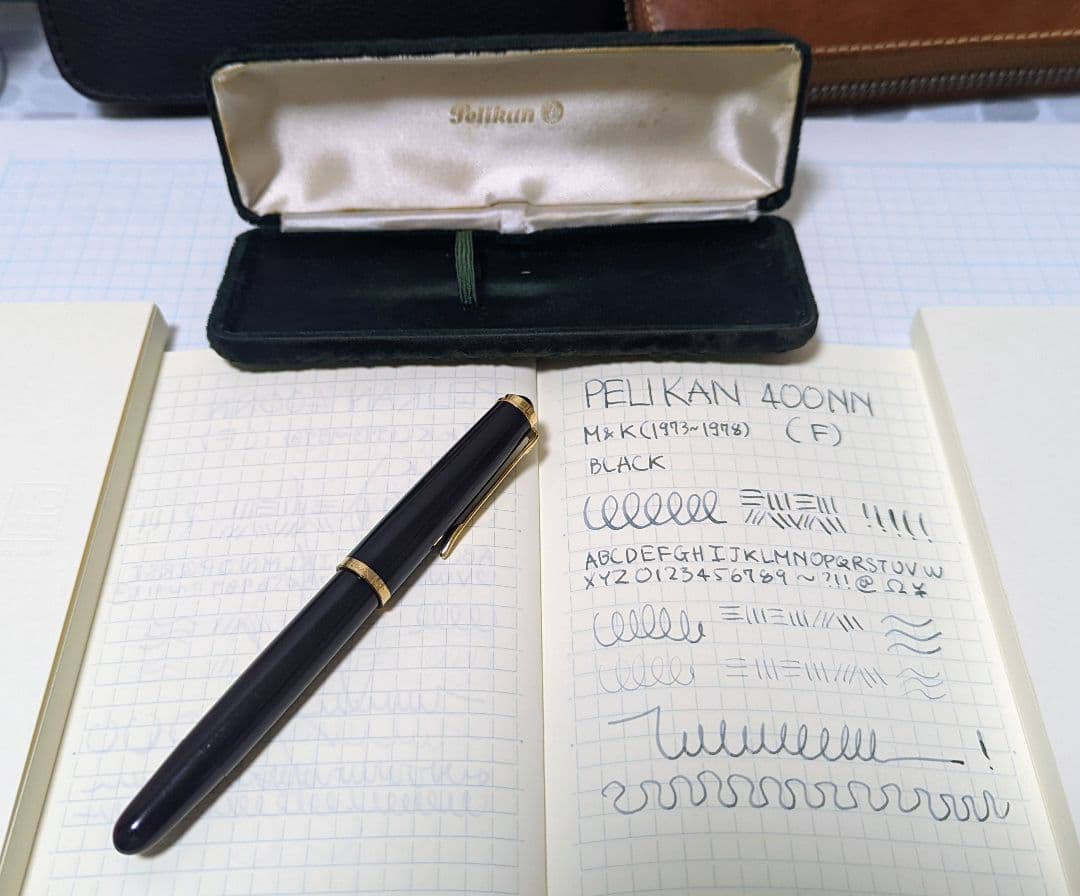 Pelikan
PELIKAN 400NN
M&K(1973~1978) (F)
BLACK
!!!!!
ABCDEFGHIJKLMNOPQRSTUVW
XYZ 0123456789 ~?!!@ Ω¥
!